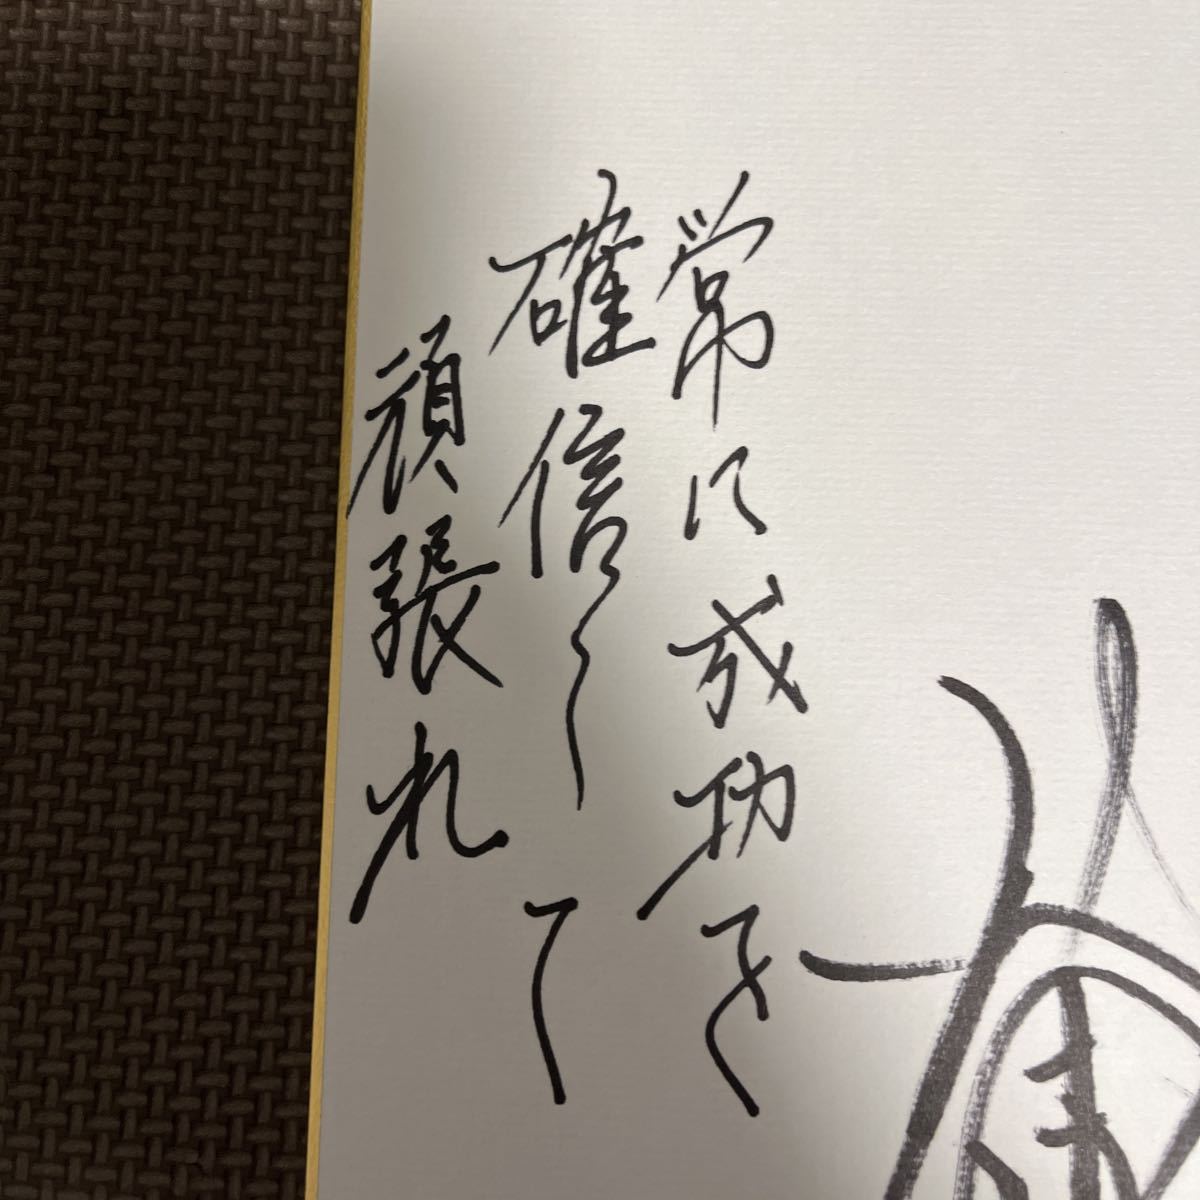 常に成功を
確信して
頑張れ